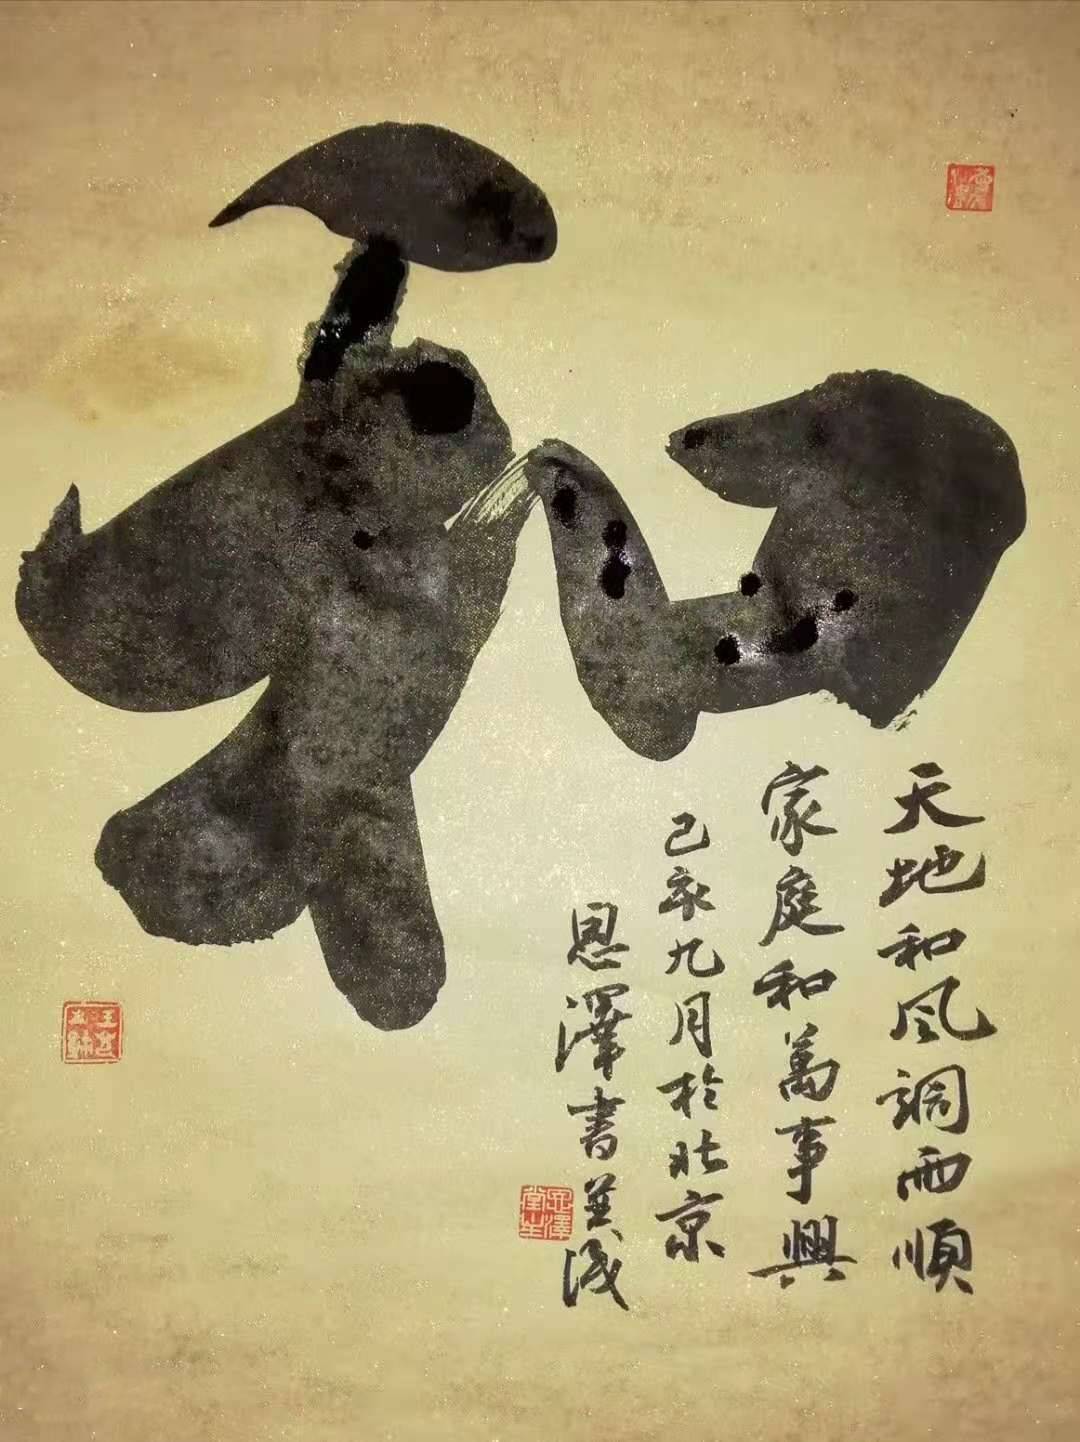 和
天地和風調雨順
家庭和萬事興
己亥九月於北京
恩澤書並識